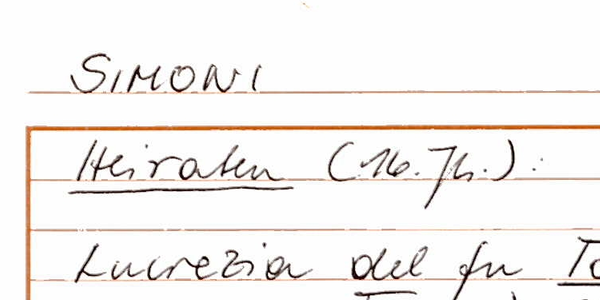 SIMONI
Heiraten (16. Jh.):
Lucrezia del fu